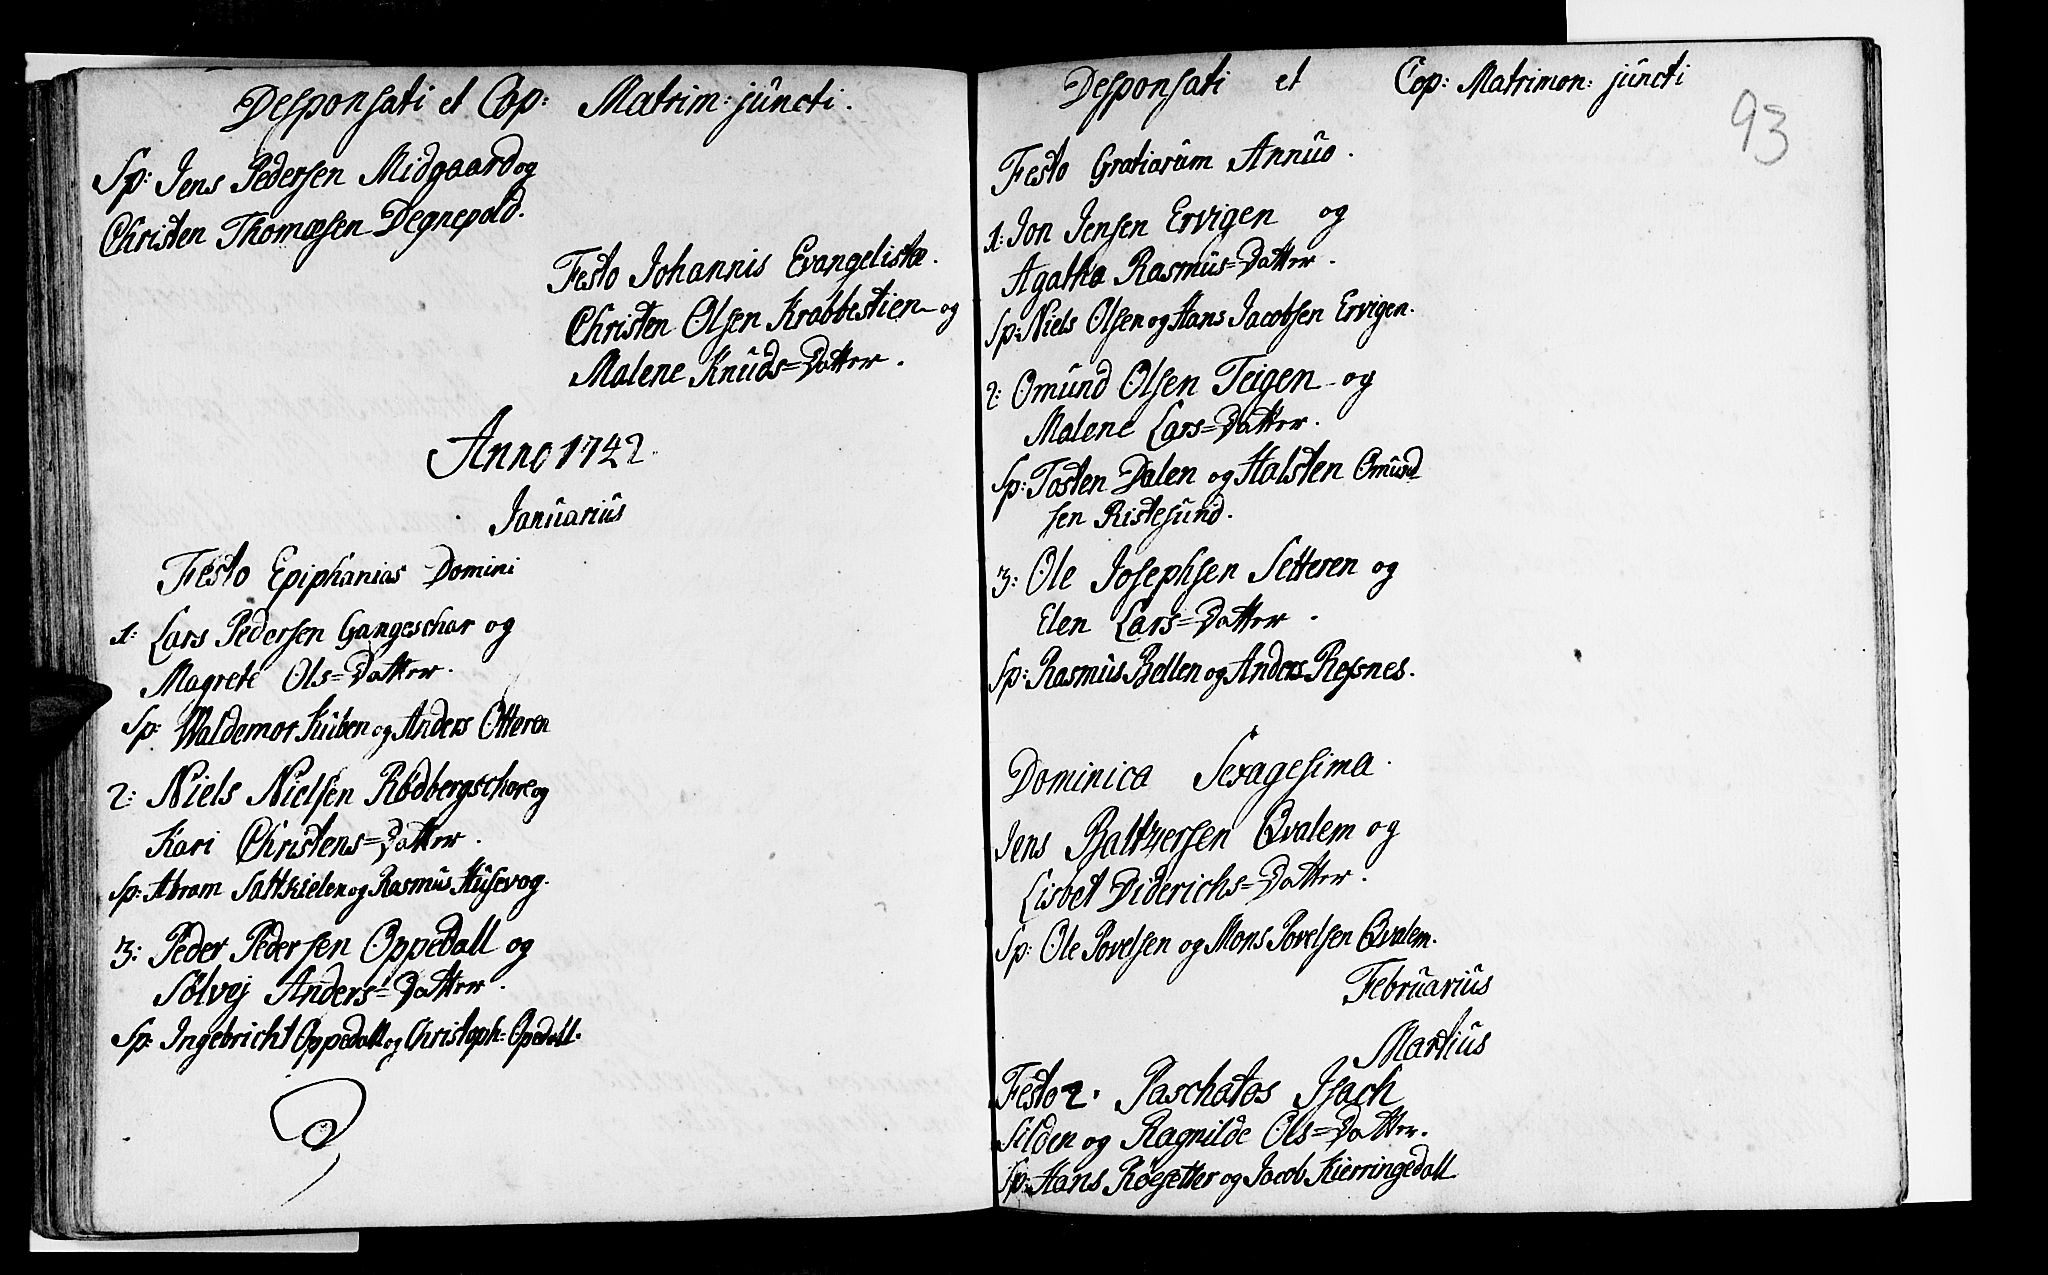 Desponsati et Cop: Matrim: juncti.
Sp: Jens Pedersen Midgaard og
Christen Thomæsen Degnepold.
Festo Johannis Evangelistæ.
Christen Olsen Krabbestien og
Malene Knuds=Datter.
Anno 1742
Januarius
Festo Epiphanias Domini
1: Lars Pedersen Gangeschar og
Magrete Ols=Datter.
Sp: Waldemar Kuben og Anders Otteren
2: Niels Nielsen Rødbergschore og
Kari Christens=Datter.
Sp: Abram Saltkielen og Rasmus Husevog.
3: Peder Pedersen Oppedall og
Sølvej Anders=Datter.
Sp: Ingebricht Oppedall og Christoph: Opedall.
Desponsati et Cop: Matrimon: juncti
93
Festo Gratiarum Annuo.
1: Jon Jensen Ervigen og
Agatha Rasmus=Datter.
Sp: Niels Olsen og Hans Jacobsen Ervigen.
2: Omund Olsen Teigen og
Malene Lars=Datter.
Sp: Tosten Dalen og Halsten Omund
sen Ristesund.
3: Ole Josephsen Setteren og
Elen Lars=Datter.
Sp: Rasmus Bellen og Anders Resnes.
Dominica Sexagesima.
Jens Baltzersen Qvalem og
Lisbet Diderichs=Datter.
Sp: Ole Povelsen og Mons Povelsen Qvalem.
Februarius
Martius
Festo 2. Paschatos Isach
Silden og Ragnilde Ols=Datter.
Sp: Hans Røesetter og Jacob Kierringedall